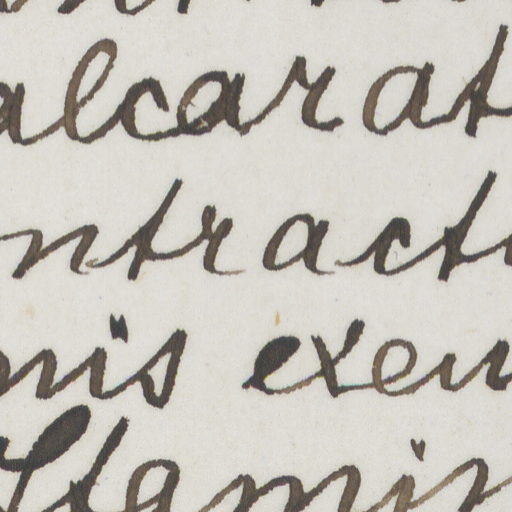 alcar at
ntr act
nis exeu
Stamin